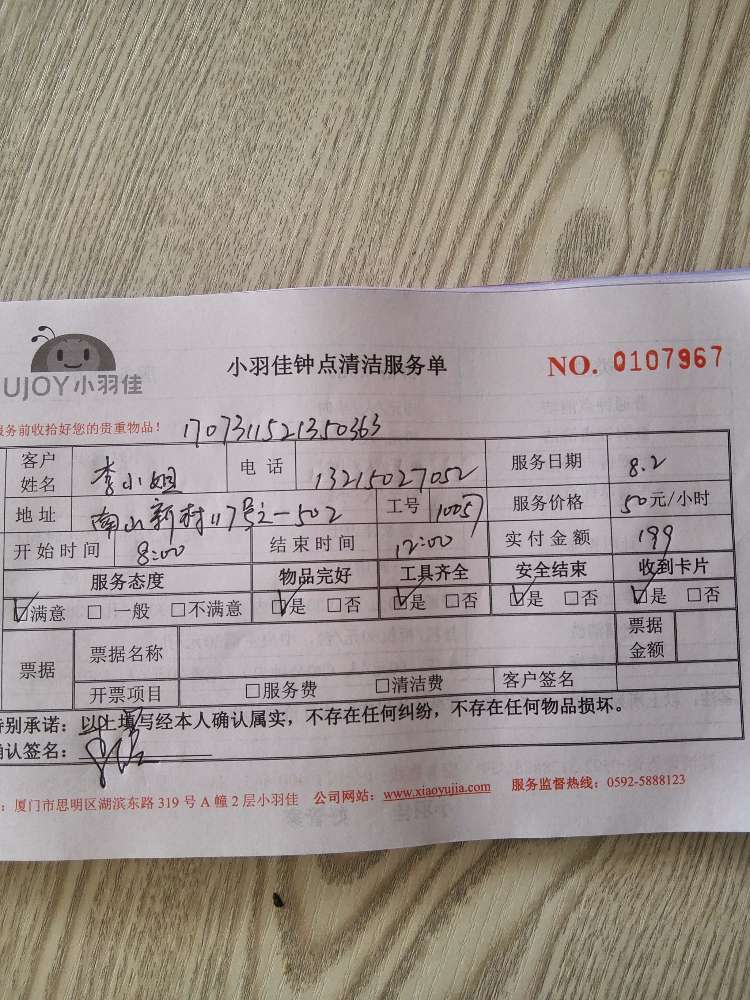 UJOY小羽佳
小羽佳钟点清洁服务单 NO. 0107967
服务前收拾好您的贵重物品! 1707311521350363
客户姓名 李小姐 电话 13215027052 服务日期 8.2
地址 南山新村117号之一502 工号 1005 服务价格 50元/小时
开始时间 8:00 结束时间 12:00 实付金额 199
服务态度 物品完好 工具齐全 安全结束 收到卡片
☑满意 □一般 □不满意 ☑是 □否 ☑是 □否 ☑是 □否 ☑是 □否
票据 票据名称 票据金额
开票项目 □服务费 □清洁费 客户签名
特别承诺: 以上填写经本人确认属实,不存在任何纠纷,不存在任何物品损坏。
确认签名:
: 厦门市思明区湖滨东路 319 号 A 幢 2 层小羽佳 公司网站: www.xiaoyujia.com 服务监督热线: 0592-5888123